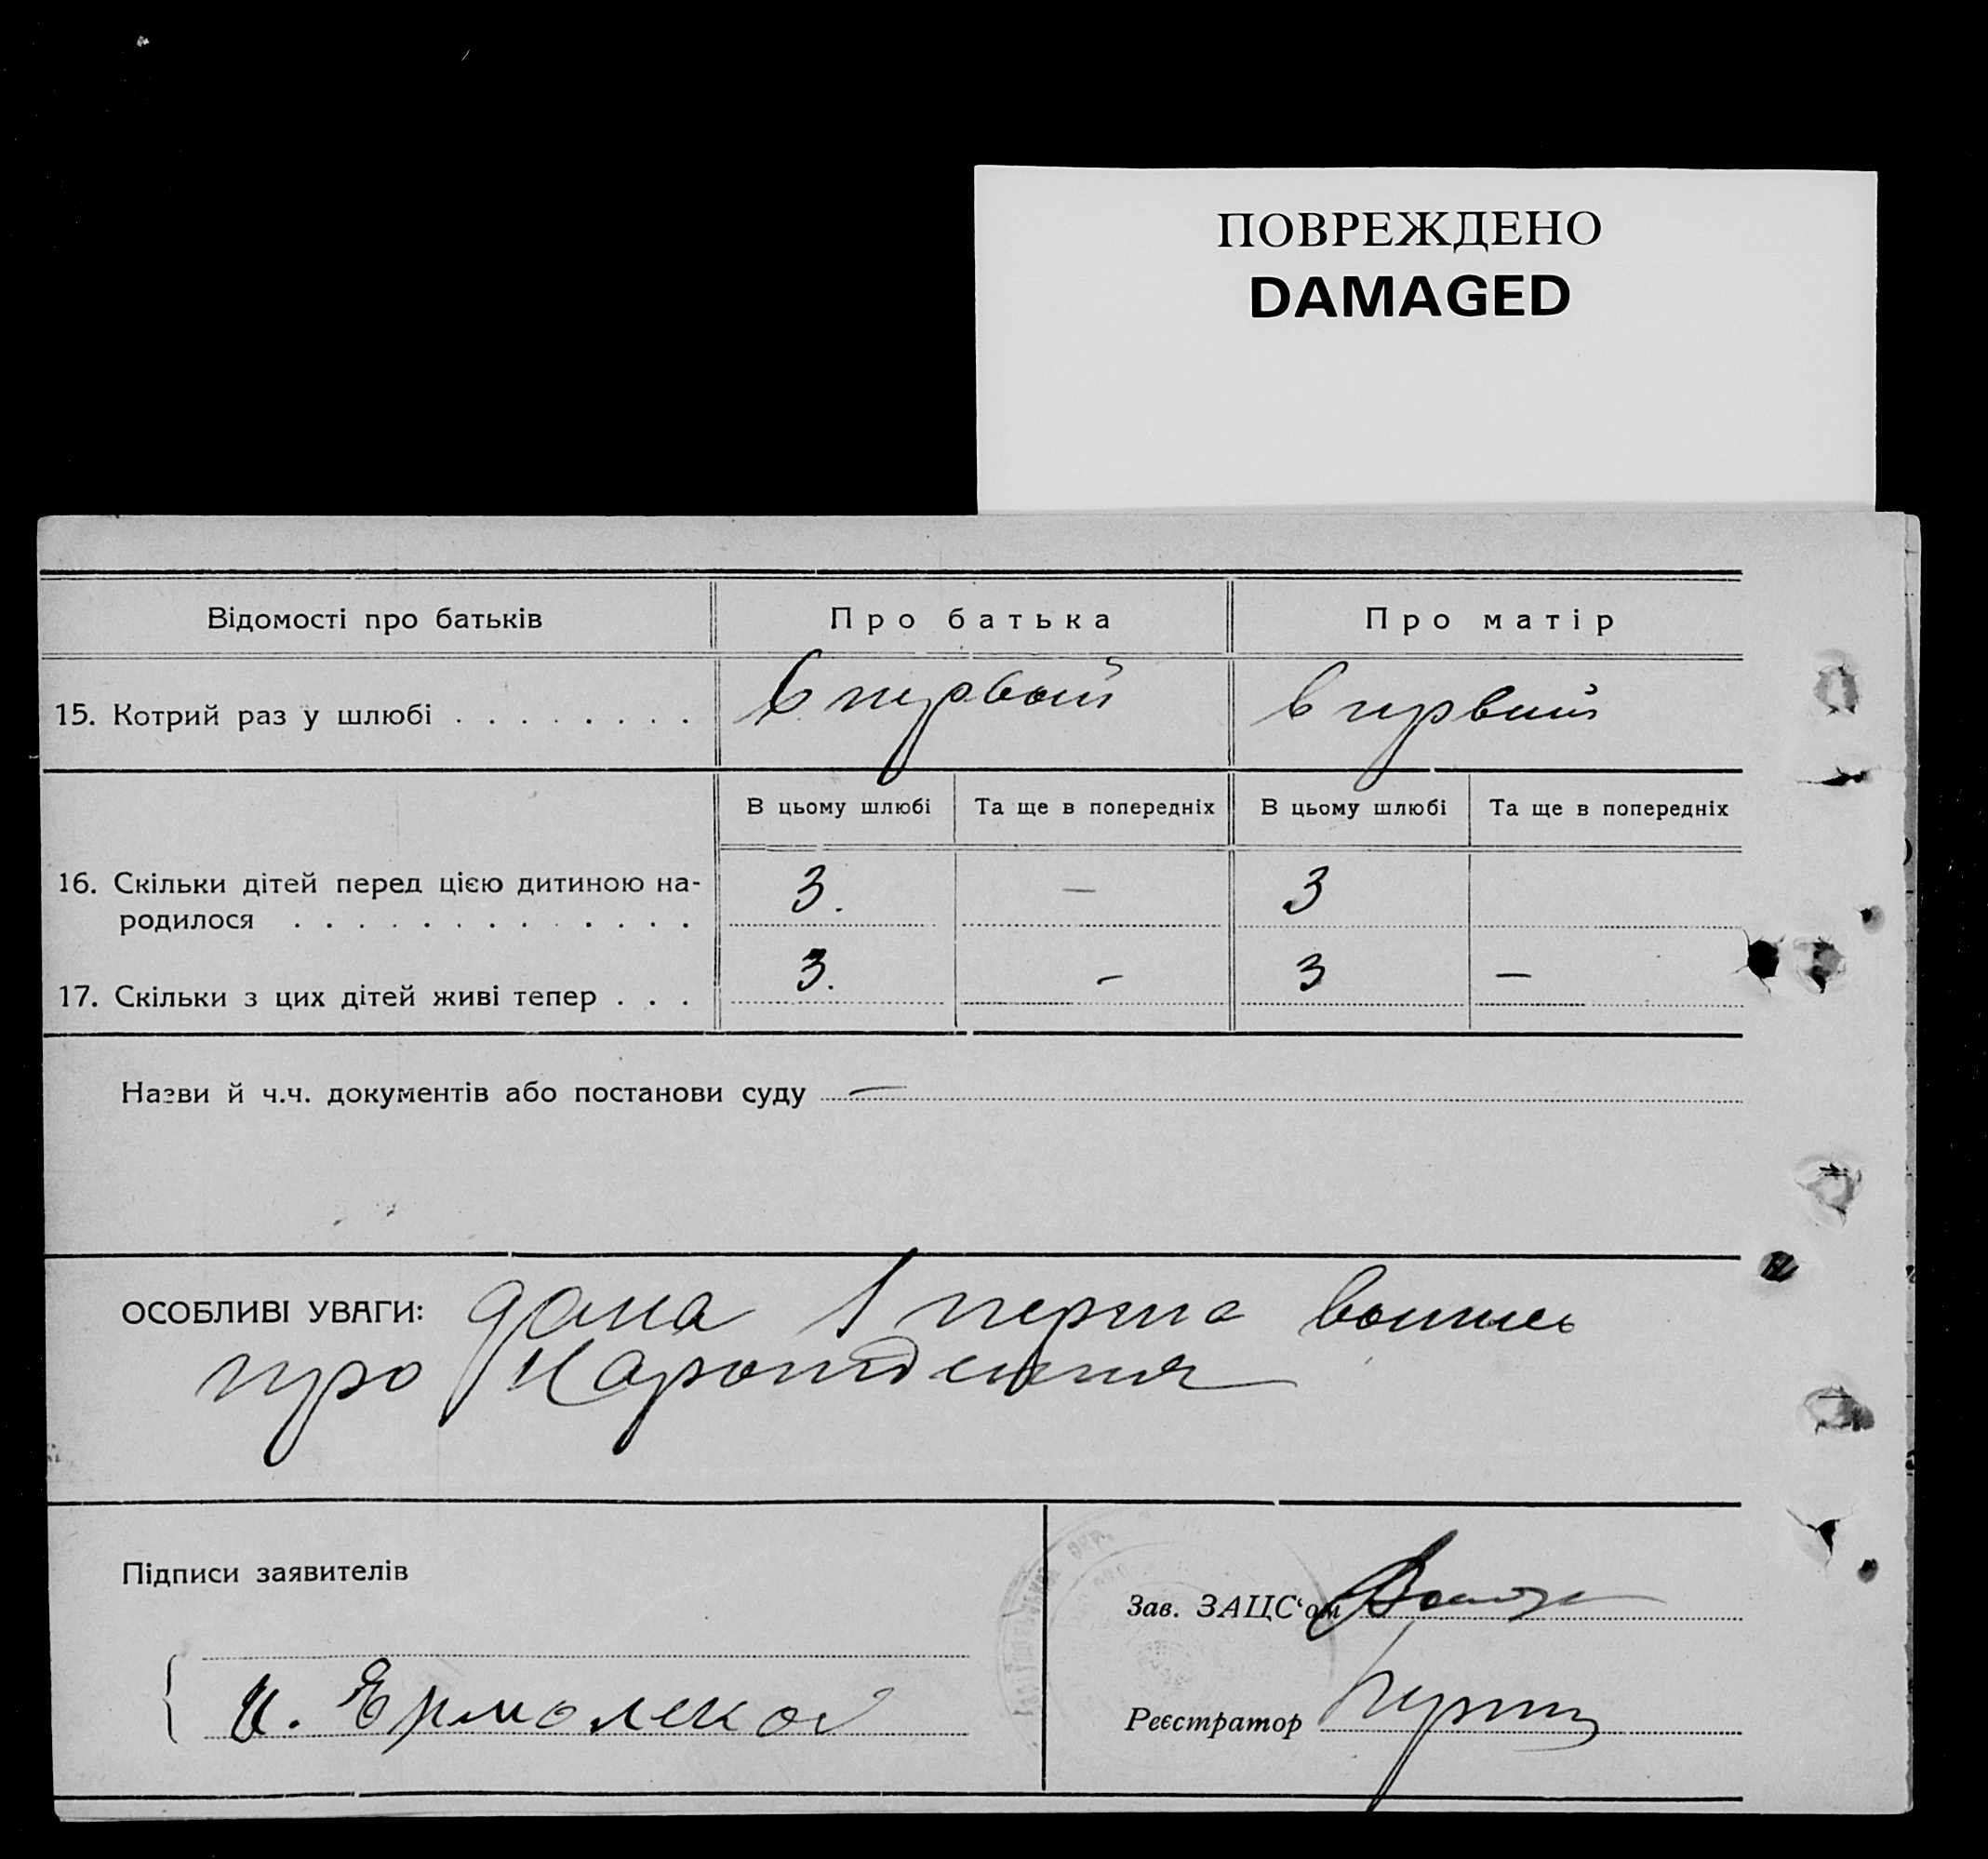 ПОВРЕЖДЕНО
DAMAGED
Відомості про батьків
Про батька
Про матір
15. Котрий раз у шлюбі . . . . . . . .
в первый
в первий
В цьому шлюбі
Та ще в попередніх
В цьому шлюбі
Та ще в попередніх
16. Скільки дітей перед цією дитиною на-
родилося . . . . . . . . . . . . .
3.
—
3
17. Скільки з цих дітей живі тепер . . .
3.
-
3
—
Назви й ч.ч. документів або постанови суду —
ОСОБЛИВІ УВАГИ: дана 1 перша
про
Підписи заявителів
Зав. ЗАЦС‘ом
Реєстратор